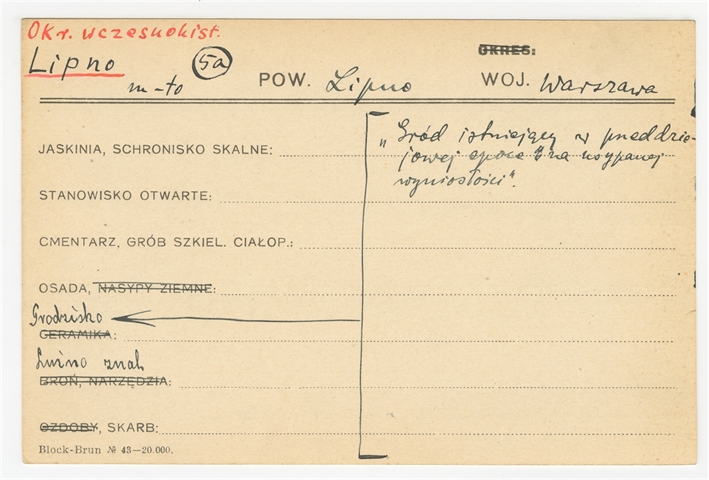 Okr. wczesnohist.
Lipno 5a OKRES:
m-to POW. Lipno WOJ. Warszawa
„Gród istniejący w przeddzie-
JASKINIA, SCHRONISKO SKALNE: jowej epoce na usypanej
STANOWISKO OTWARTE: wyniosłości".
CMENTARZ, GRÓB SZKIEL. CIAŁOP.:
OSADA, NASYPY ZIEMNE:
Grodzisko
CERAMIKA:
Luźno znal.
BROŃ, NARZĘDZIA:
OZDOBY, SKARB:
Block-Brun № 43—20.000.